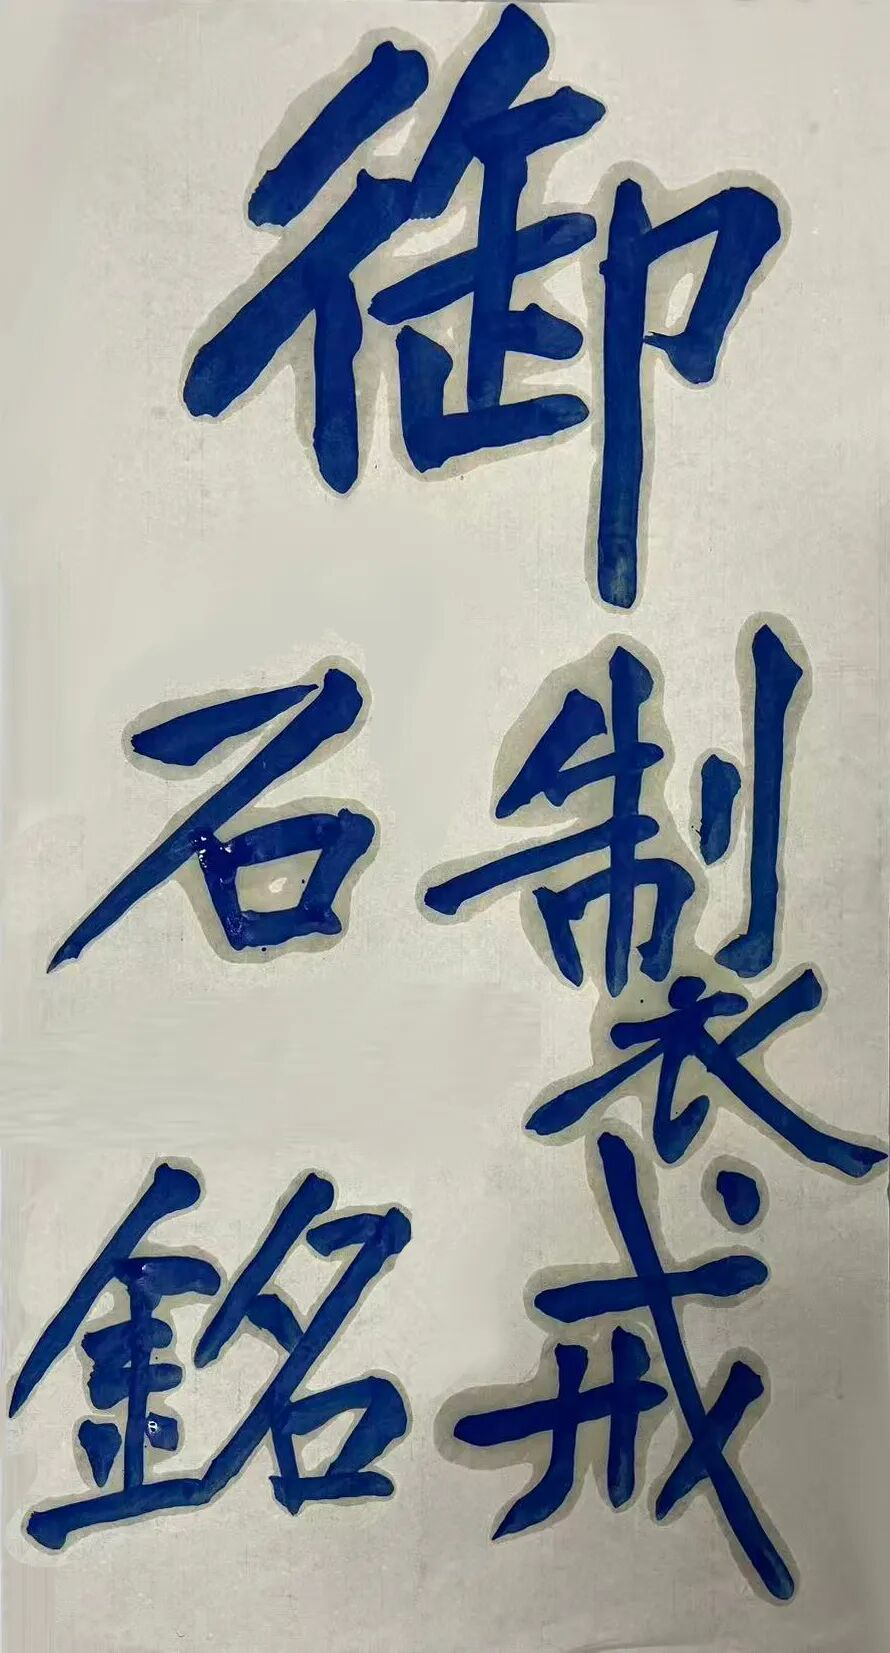 御製戒
石銘